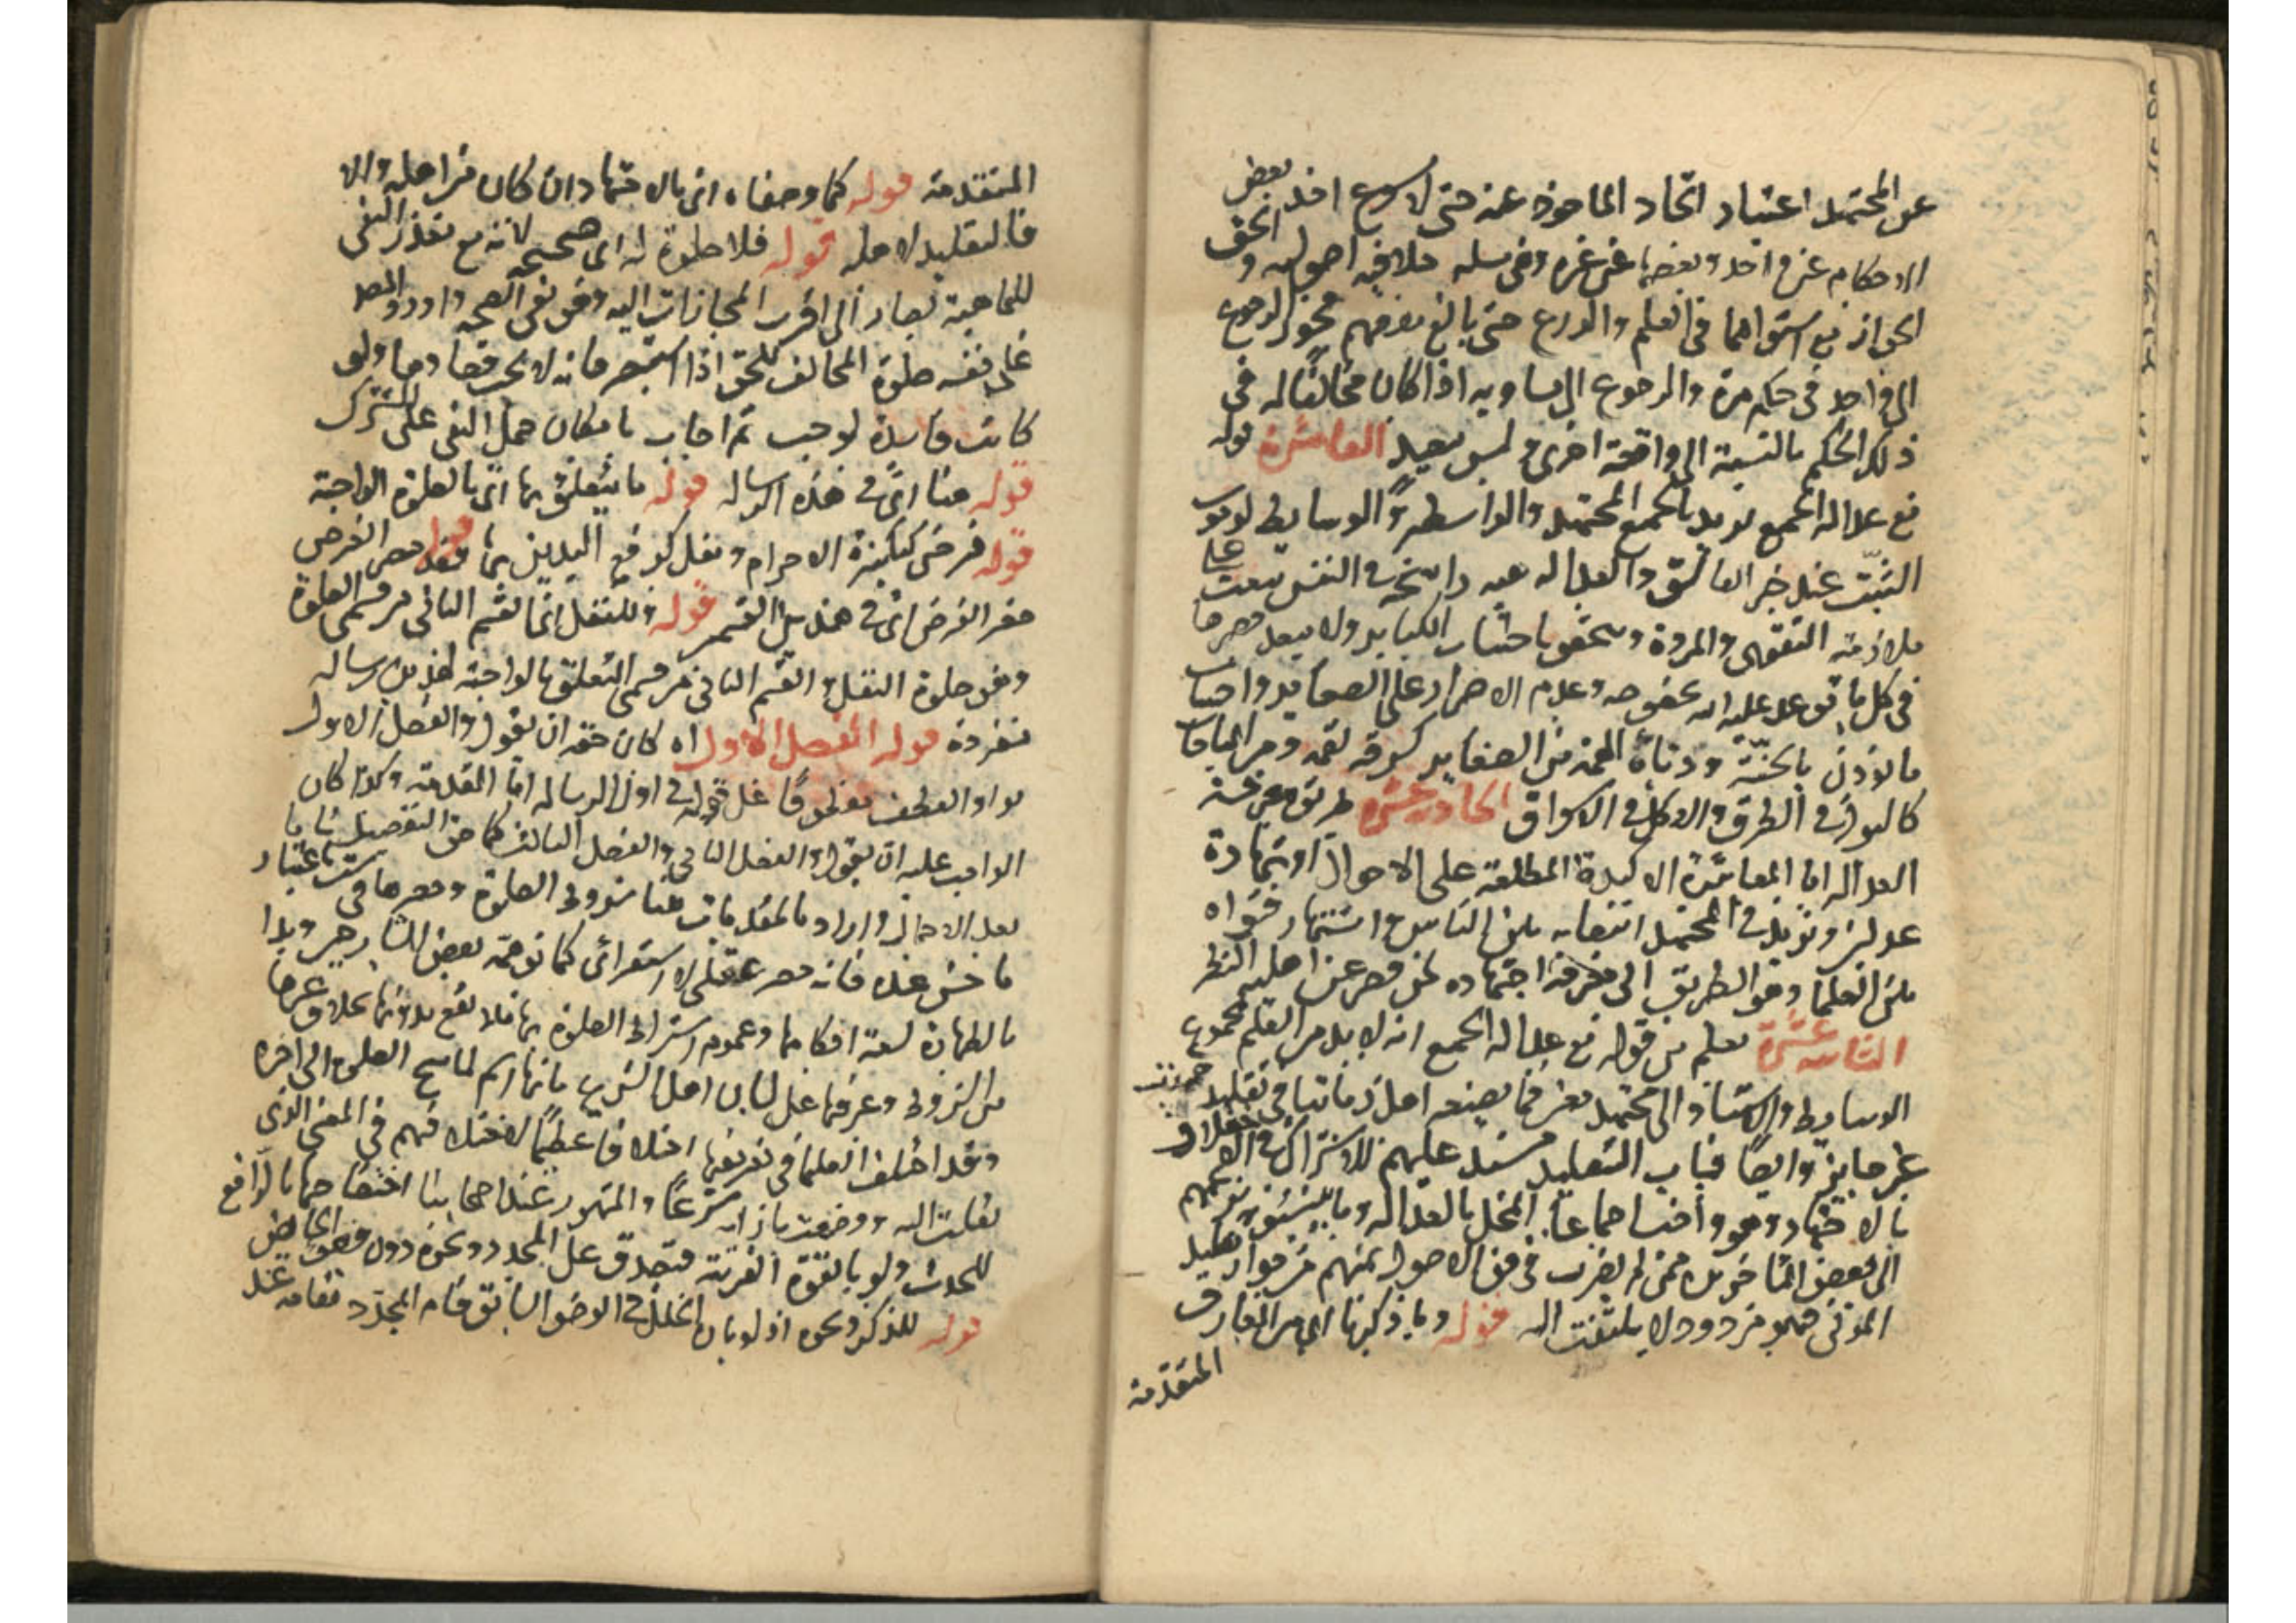 عن المجتهد اعتبار اتحاد الماخوذ عنه حتى لا يسوغ اخذ بعض
الاحكام عن واحد وبعضها عن غيره وهي مسله خلافيه اصوليه والحق
الجواز مع استواهما في العلم والورع حتى بالغ بعضهم فجوز الرجوع
الى واحد في حكم مرة والرجوع الى مساويه اذا كان مخالفا له في
ذلك الحكم بالنسبة الى واقعة اخرى وليس ببعيد العاشرة قوله
مع عدالة الجميع يريد بالجميع المجتهد والواسطة او الوسايط لوجوب
التثبت عند خبر الفاسق والعدالة هيه راسخة في النفس تبعث على
ملازمة التقوى والمروة وتتحقق باجتناب الكباير ولا يبعد حصرها
في كل ما توعد عليه الله بخصوصه وعدم الاصرار على الصغاير واجتناب
ما يوذن بالخسة ودناءة الهمة من الصغاير كسرقة لقمة ومن المباحات
كالبول في الطرق والاكل في الاسواق الحادية عشرة طريق معرفة
العدالة اما المعاشرة الاكيدة المطلعة على الاحوال او شهادة
عدلين ويزيد في المجتهد انتصابه بين الناس واشتهار فتواه
بين العلما وهو الطريق الى معرفة اجتهاده لمن قصر عن اهلية النظر
الثانية عشرة يعلم من قوله مع عدالة الجميع انه لا بد من العلم بمجموع
الوسايط والاستناد الى مجتهد معين فما يصنعه اهل زماننا في تقليد
غير جايز وايضا فباب التقليد منسد عليهم للاشتراك في
بالاجتهاد وهو وافسا جماعا المخل بالعدالة وما
الى بعض المتاخرين ممن لم يضرب في فن الاصول بسهم من جواز تقليد
الموتى فهو مردود لا يلتفت اليه قوله وما ذكرنا اي من المعارف
المتقدمة
المتقدمة قوله كما وصفناه اي بالاجتهاد ان كان من اهله والا
فالتقليد لاهله قوله فلا صلوة له اي صحيحة لانه مع تعذر النفي
للماهية يصار الى اقرب المجازات اليه وهو نفي الصحة واورد المصنف
على نفسه صلوة المخالف للحق اذا استبصر فانه لا يجب قضاوها ولو
كانت فاسدة لوجب ثم اجاب بامكان حمل النفي على المشترك
قوله هنا اي في هذه الرساله قوله ما يتعلق بها اي بالصلوة الواجبة
قوله فرض كتكبيرة الاحرام ونفل كرفع اليدين بها قوله حصر الفرض
حصر الفرض اي في هذين القسمين قوله وللنفل اي القسم الثاني من قسمي الصلوة
وهو صلوة النفل والقسم الثاني من قسمي المتعلق بالواجبة لهذين رسالة
منفردة قوله الفصل الاول اه كان حقه ان يقول والفصل الاول
بواو العطف معطوفا على قوله في اول الرساله اما المقدمة وكذا كان
الواجب عليه ان يقول والفصل الثاني والفصل الثالث كما هو التفصيل
بعد الاجمال واراد بالمقدمات هنا شروط الصلوة وحصرها في ست باعتبار
ما حسن عنده فانه حصر عقلي لا استقرائي كما توهمه بعض الشارحين وبدا
بالطهارة لسعة احكامها وعموم اشتراط الصلوة بها فلا تقع بدونها بخلاف غيرها
من الشروط وعرفها على لسان اهل الشرع بانها اسم لما يبيح الصلوة الى اخره
وقد اختلف العلما في تعريفها اختلافا عظيما لاختلافهم في المعنى الذي
نقلت اليه ووضعت بازايه شرعا والمشهور عند اصحابنا اختصاصها بالرافع
للحدث ولو بالقوة القريبة فتصدق على المجدد ونحوه دون وضوء الحايض
قوله للذكر ونحوه اذ لو بان الخلل في الوضو السابق قام المجدد مقامه عند